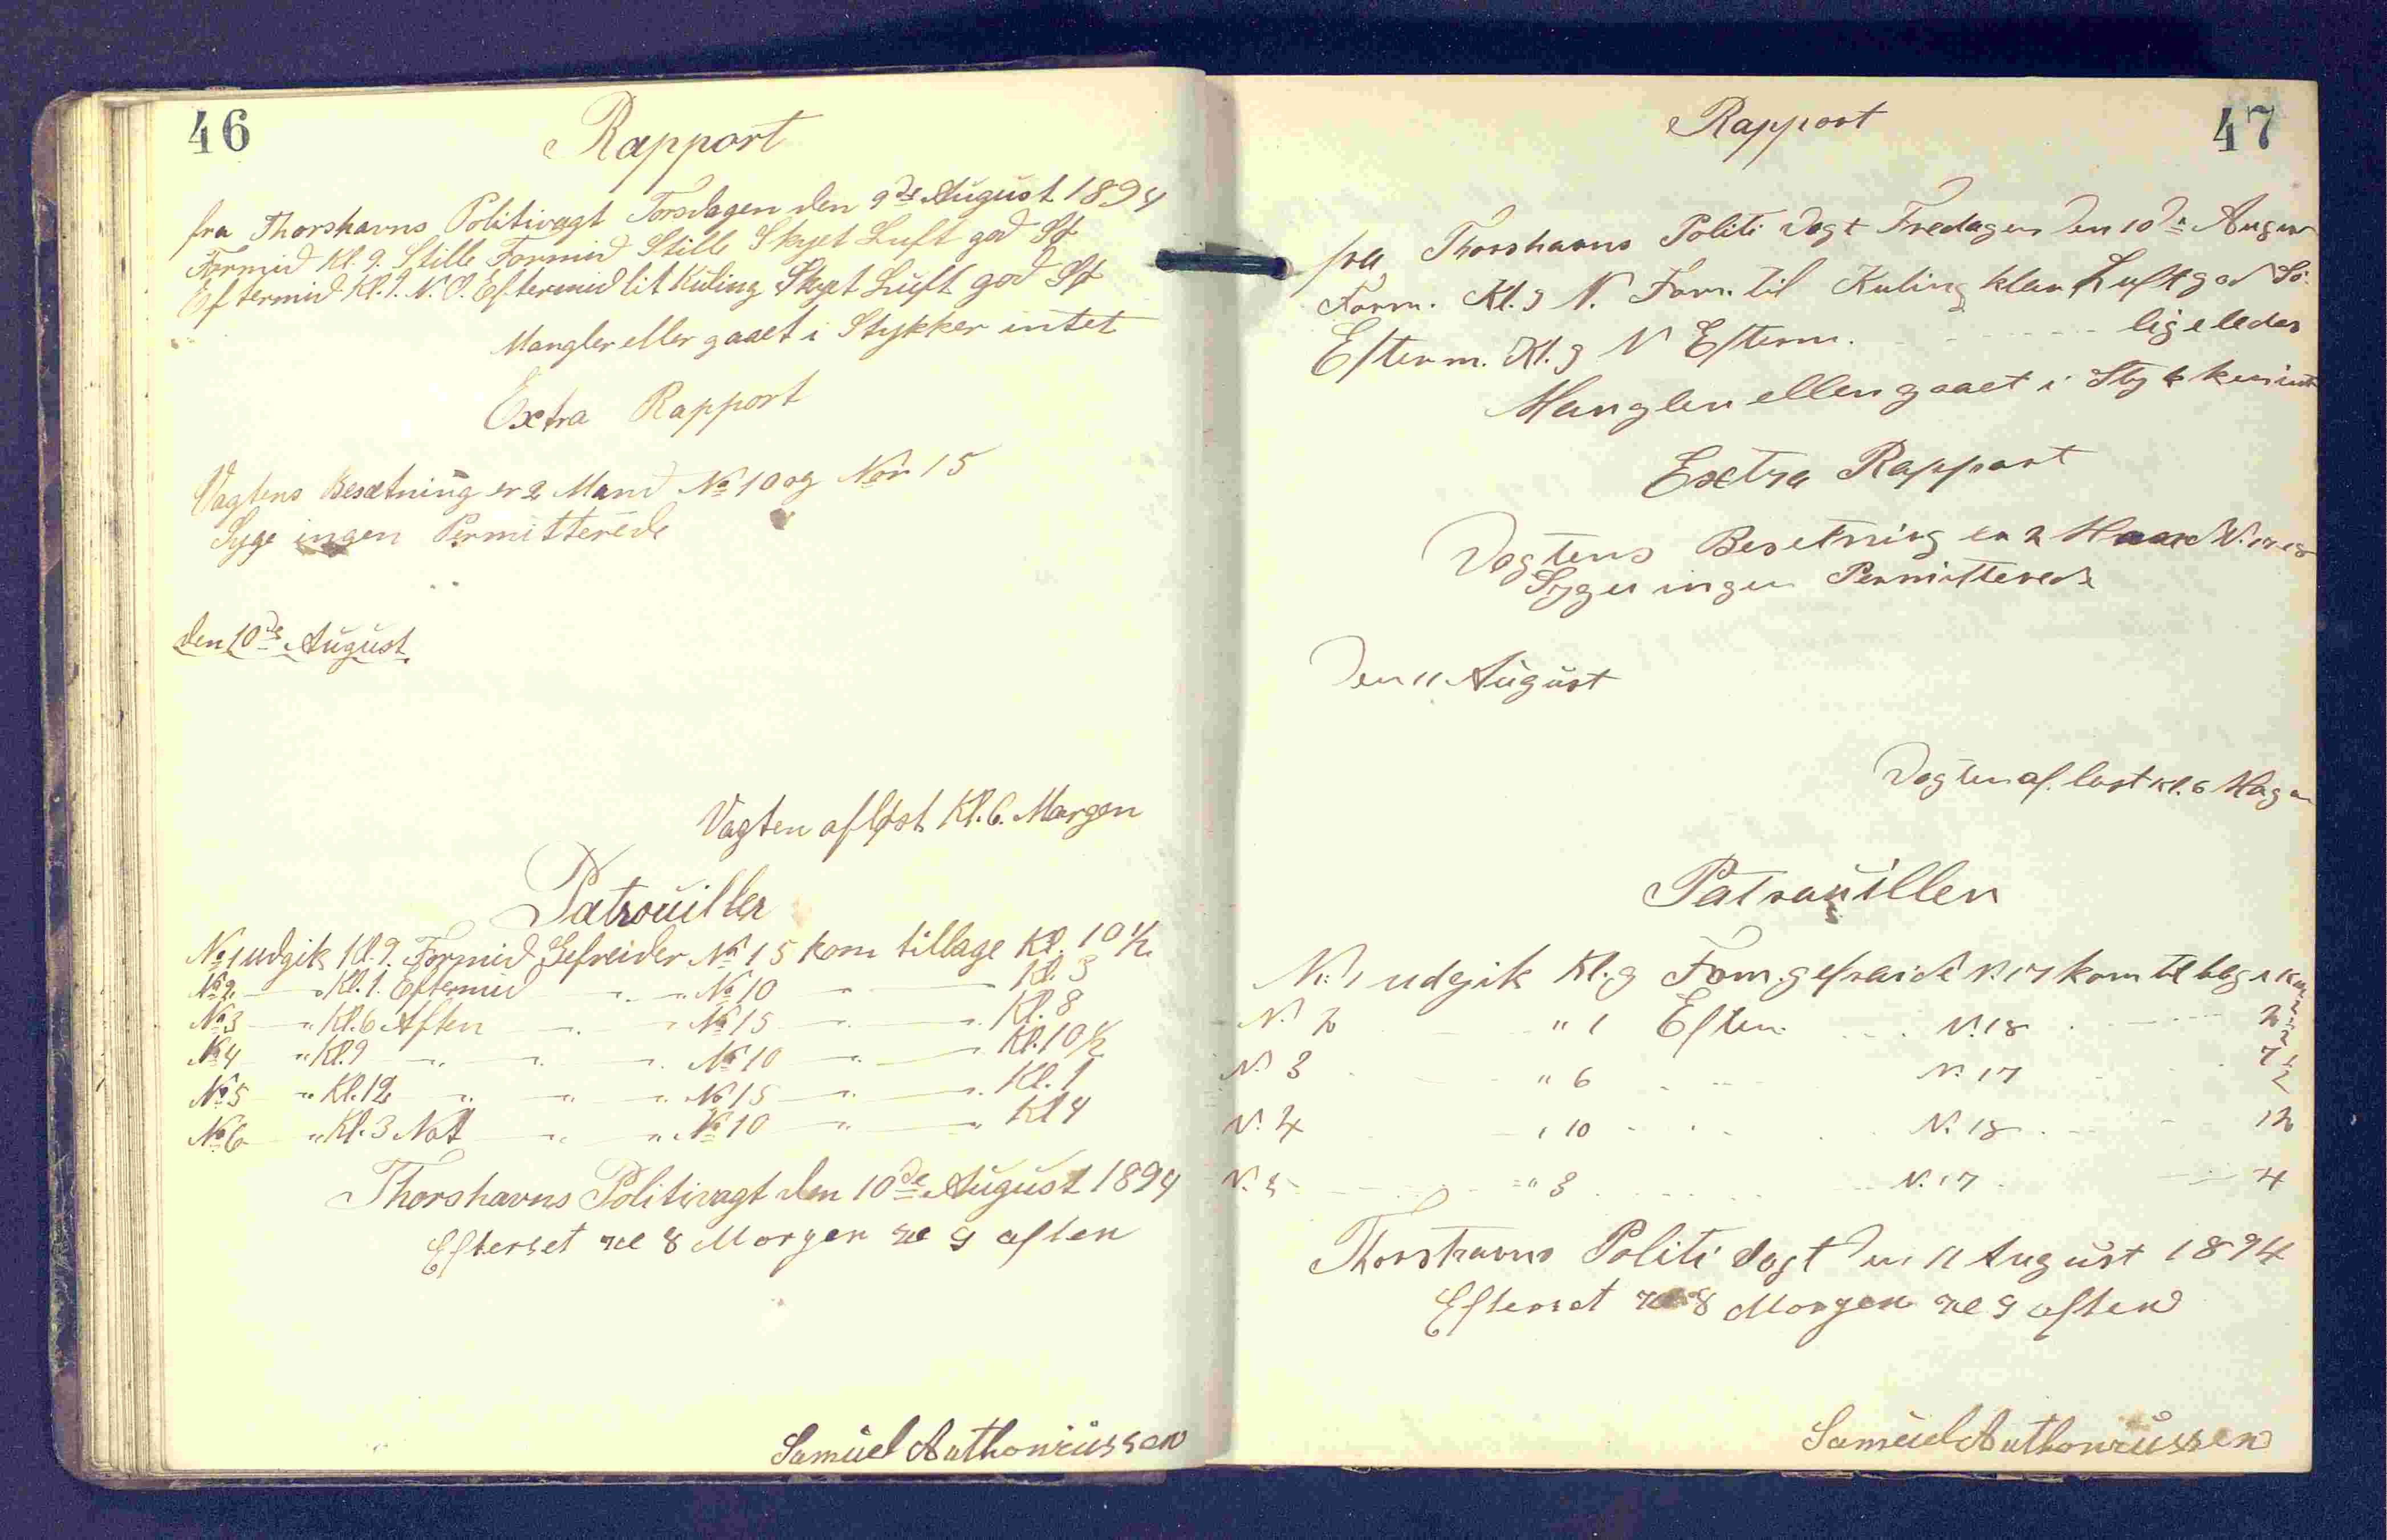 46
Rapport
fra Thorshavns Politivagt Torsdagen den 9de August 1894
Formid Kl. 9. Stille Formid Stille Skyet Luft god Sø
Eftermid Kl. 1. N.O. Eftermid lit Kuling Skyet Luft god Sø
Mangler eller gaaet i Stykker intet
Extra Rapport
Vagtens Besætning er 2 Mand No 10 og Nor 15
Syge ingen Permitterede
den 10de August
Vagten afløst Kl. 6. Morgen
Patrouiller
No 1 udgik Kl. 9. Formid Gefreider No 15 kom tillage Kl. 10 1/2
No 2. — " Kl. 1. Eftermid — " — " No 10 — " — Kl. 3
No 3 — " Kl. 6 Aften — " — " No 15 — " — " Kl. 8
No 4 — " Kl. 9 — " — " — " No 10 — " — " Kl. 10 1/2
No 5 — " Kl. 12 — " — " — " No 15 — " — " Kl. 1
No 6 — " Kl. 3 Nat — " — " No 10 — " — " Kl 4
Thorshavns Politivagt den 10de August 1894
Efterset Kl 8 Morgen Kl 9 aften
Samuel Anthoniussen
47
Rapport
fra Thorshavns Politi Vagt Fredagen den 10de August
Form. Kl. 9 N. Form. lil Kuling klar Luft god Sö.
Efterm. Kl. 9 N Efterm. - - - - ligeledes
Mangler eller gaaet i Stykker intet
Extra Rapport
Vagtens Besetning er 2 Mand N. 17 18
Syger ingen Permitterede
Den 11 August
Vagten af löst Kl. 6
Patrouiller
N: 1 udgik Kl. 9 Form. gefraide N. 17 kom tilbage
N. 2 " 1 Efter. N. 18 2 1/2
N. 3 " 6 N. 17 7 1/2
N. 4 " 10 N. 18 12
N. 5 " 3 N. 17 4
Thorshavns Politi Vagt den 11 August 1894
Efterset Kl 8 Morgen Kl 9 aften
Samuel Anthoniussen